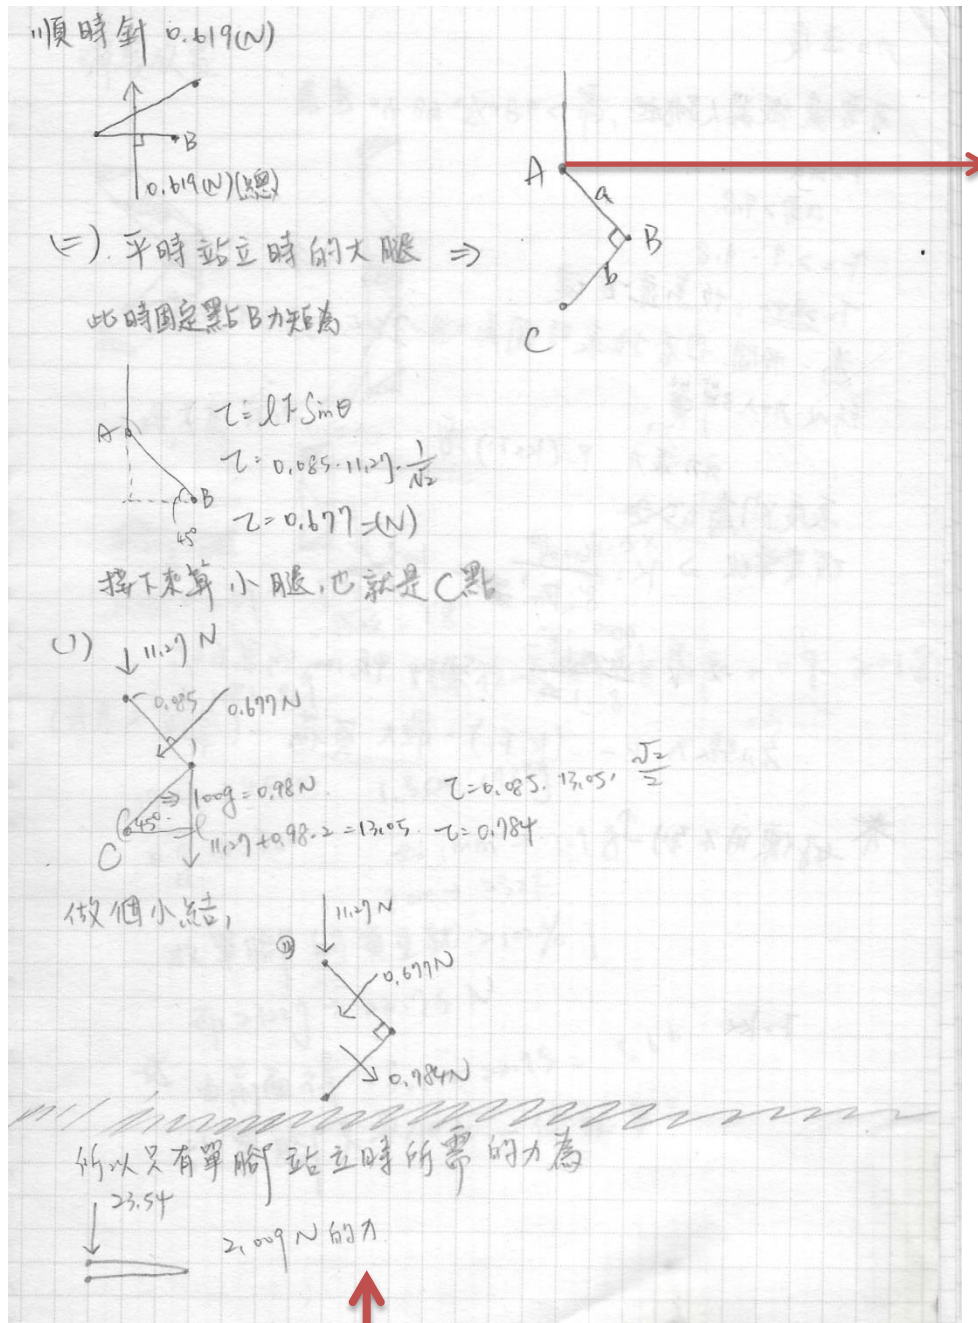 順時針 0.619(N)
B
0.619(N)(總)
A
a
B
b
C
(二). 平時站立時的大腿 ⇒
此時固定點B力矩為
A
B
45°
τ = l F Sinθ
τ = 0.085 · 11.27 · 1/√2
τ = 0.677 (N)
接下來算小腿,也就是C點
(1)
11.27 N
0.085
0.677N
⇒ 100g = 0.98N
45°
C
11.27 + 0.98·2 = 13.05
τ = 0.085 · 13.05 · √2/2
τ = 0.784
做個小結,
11.27 N
0.677N
0.784N
所以只有單腳站立時所需的力為
23.54
2.009 N 的力